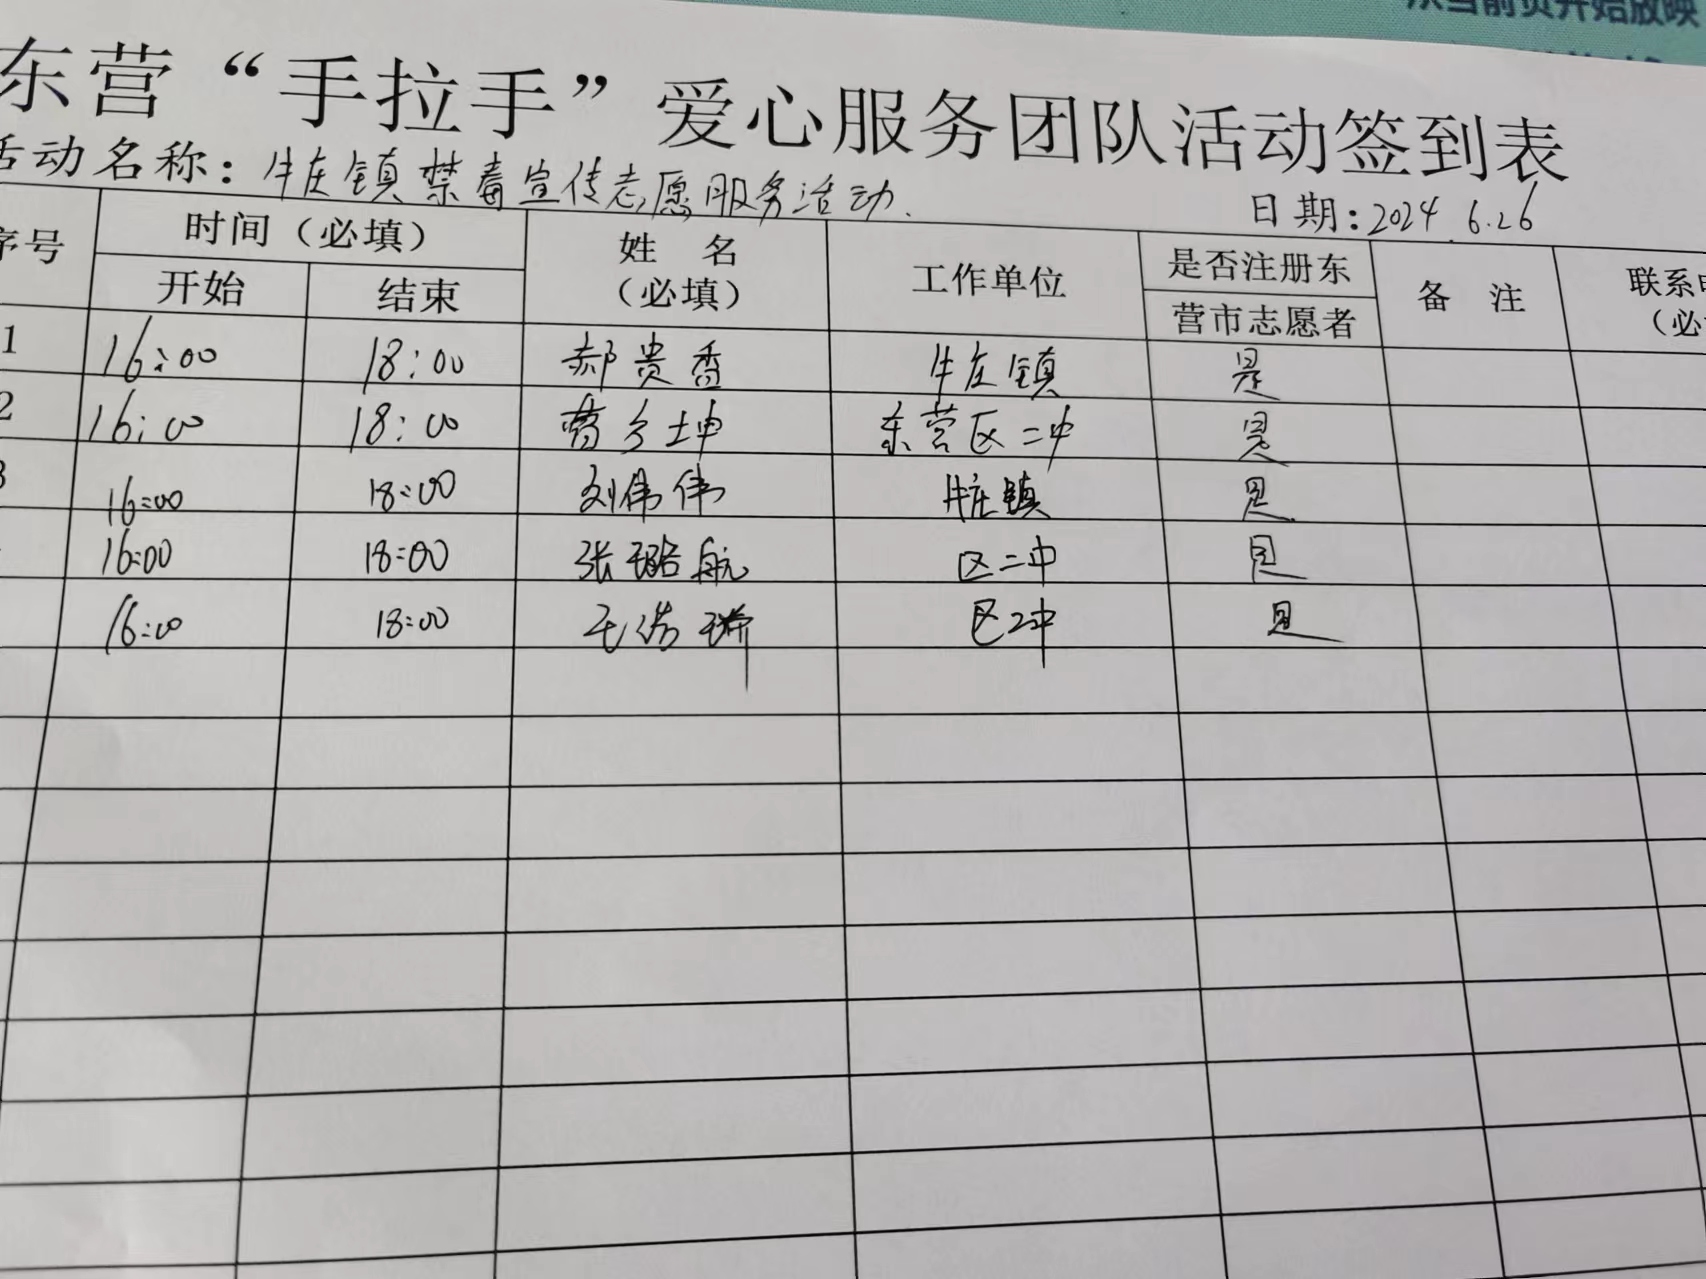 从当前页开始放映
东营“手拉手”爱心服务团队活动签到表
活动名称：牛庄镇禁毒宣传志愿服务活动.
日期：2024.6.26
序号 时间（必填） 开始 结束 姓 名（必填） 工作单位 是否注册东营市志愿者 备 注 联系电（必
1 16:00 18:00 郝贵香 牛庄镇 是
2 16:00 18:00 曹乡坤 东营区二中 是
3 16:00 18:00 刘伟伟 牛庄镇 是
16:00 18:00 张璐航 区二中 是
16:00 18:00 区二中 是